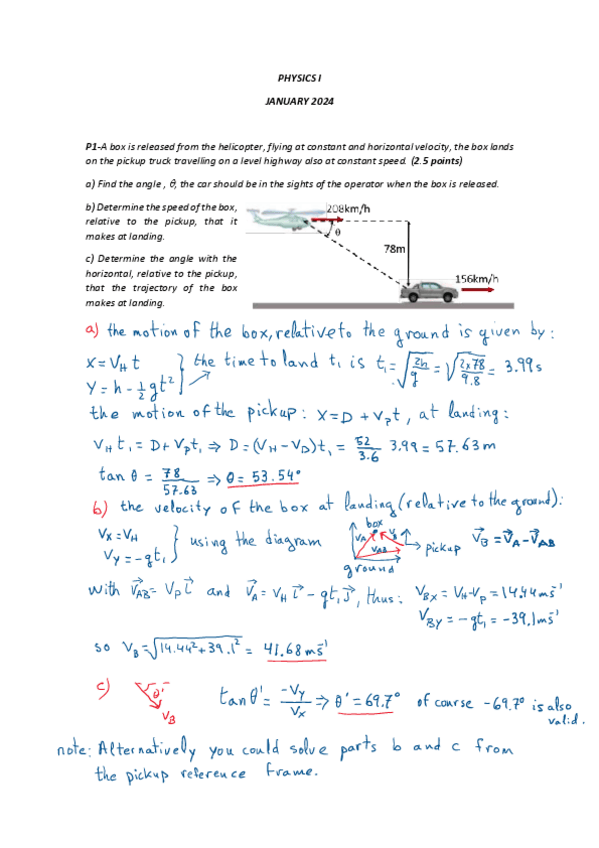 PHYSICS I
JANUARY 2024
P1-A box is released from the helicopter, flying at constant and horizontal velocity, the box lands
on the pickup truck travelling on a level highway also at constant speed. (2.5 points)
a) Find the angle , θ, the car should be in the sights of the operator when the box is released.
b) Determine the speed of the box,
relative to the pickup, that it
makes at landing.
c) Determine the angle with the
horizontal, relative to the pickup,
that the trajectory of the box
makes at landing.
208km/h
θ
78m
156km/h
a) the motion of the box, relative to the ground is given by:
X = V_H t
Y = h - 1/2 gt² } the time to land t₁ is t₁ = √(2h/g) = √(2x78/9.8) = 3.99s
the motion of the pickup: X = D + V_P t, at landing:
V_H t₁ = D + V_P t₁ ⇒ D = (V_H - V_D) t₁ = 52/3.6 3.99 = 57.63 m
tan θ = 78/57.63 ⇒ θ = 53.54°
b) the velocity of the box at landing (relative to the ground):
V_X = V_H
V_Y = -gt₁ } using the diagram
box
V_A
V_B
V_AB
pickup
ground
V⃗_B = V⃗_A - V⃗_AB
with V⃗_AB = V_P i⃗ and V⃗_A = V_H i⃗ - gt₁ j⃗, thus: V_BX = V_H - V_P = 14.44 ms⁻¹
V_BY = -gt₁ = -39.1 ms⁻¹
so V_B = √(14.44² + 39.1²) = 41.68 ms⁻¹
c) θ' V_B tan θ' = -V_Y/V_X ⇒ θ' = 69.7° of course -69.7° is also
valid.
note: Alternatively you could solve parts b and c from
the pickup reference frame.